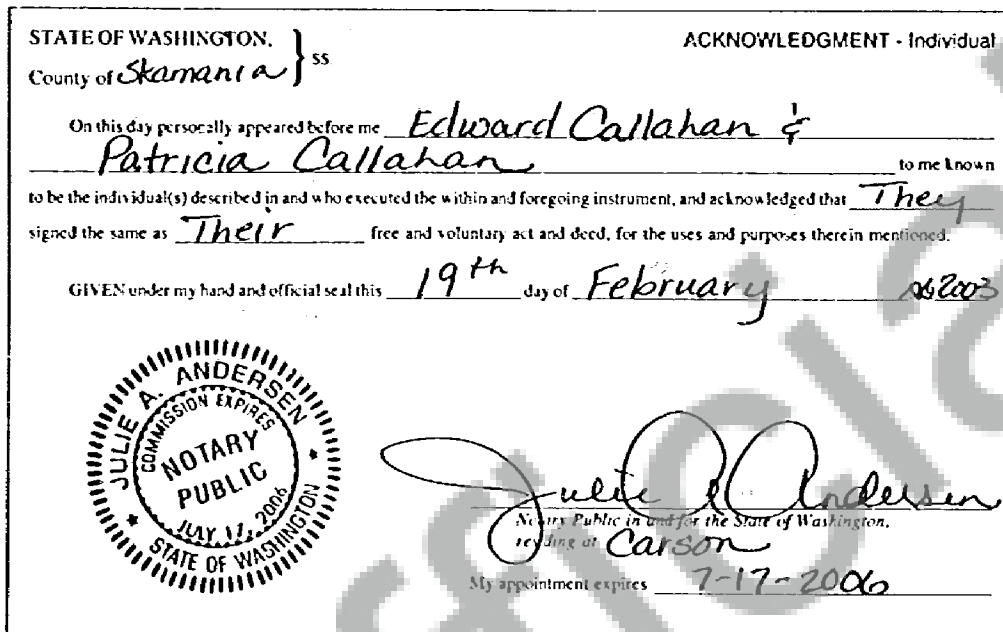 STATE OF WASHINGTON, ACKNOWLEDGMENT - Individual
County of Skamania } ss
On this day personally appeared before me Edward Callahan &
Patricia Callahan to me known
to be the individual(s) described in and who executed the within and foregoing instrument, and acknowledged that They
signed the same as Their free and voluntary act and deed, for the uses and purposes therein mentioned.
GIVEN under my hand and official seal this 19th day of February 2003
JULIE A. ANDERSEN
COMMISSION EXPIRES
NOTARY
PUBLIC
JULY 17, 2006
STATE OF WASHINGTON
Julie A Andersen
Notary Public in and for the State of Washington,
residing at Carson
My appointment expires 7-17-2006